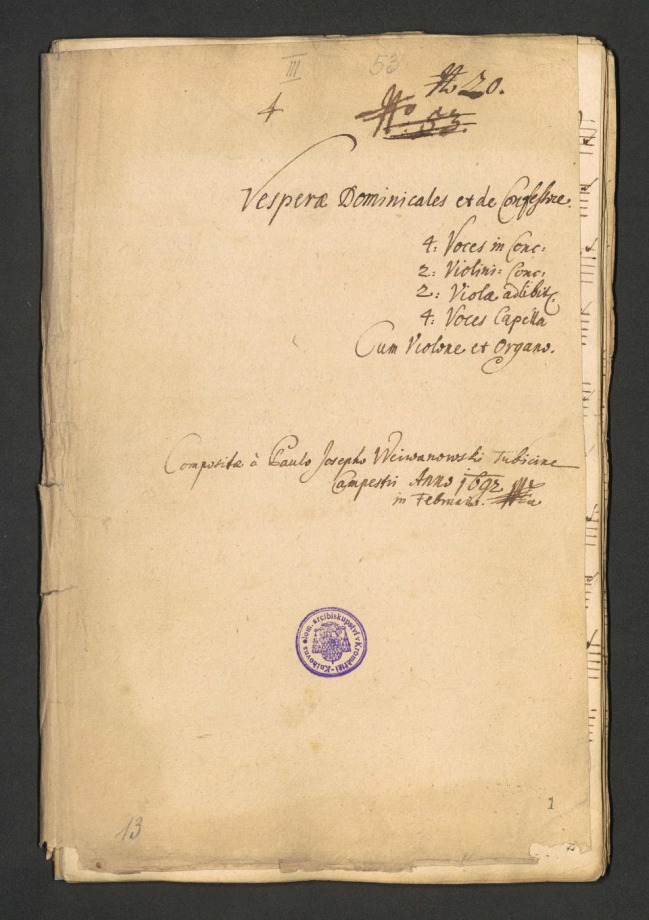 III 53
№ 20.
4
№. 53.
Vesperæ Dominicales et de Confessore.
4: Voces in Conc:
2: Violini: Conc:
2: Violæ ad libit.
4: Voces Capella
Cum Violone et Organo.
Compositæ à Paulo Josepho Weiwanowski Tubicine
Campestri Anno 1692
in Februario.
Knihovna olom. arcibiskupství v Kroměříži
1
13